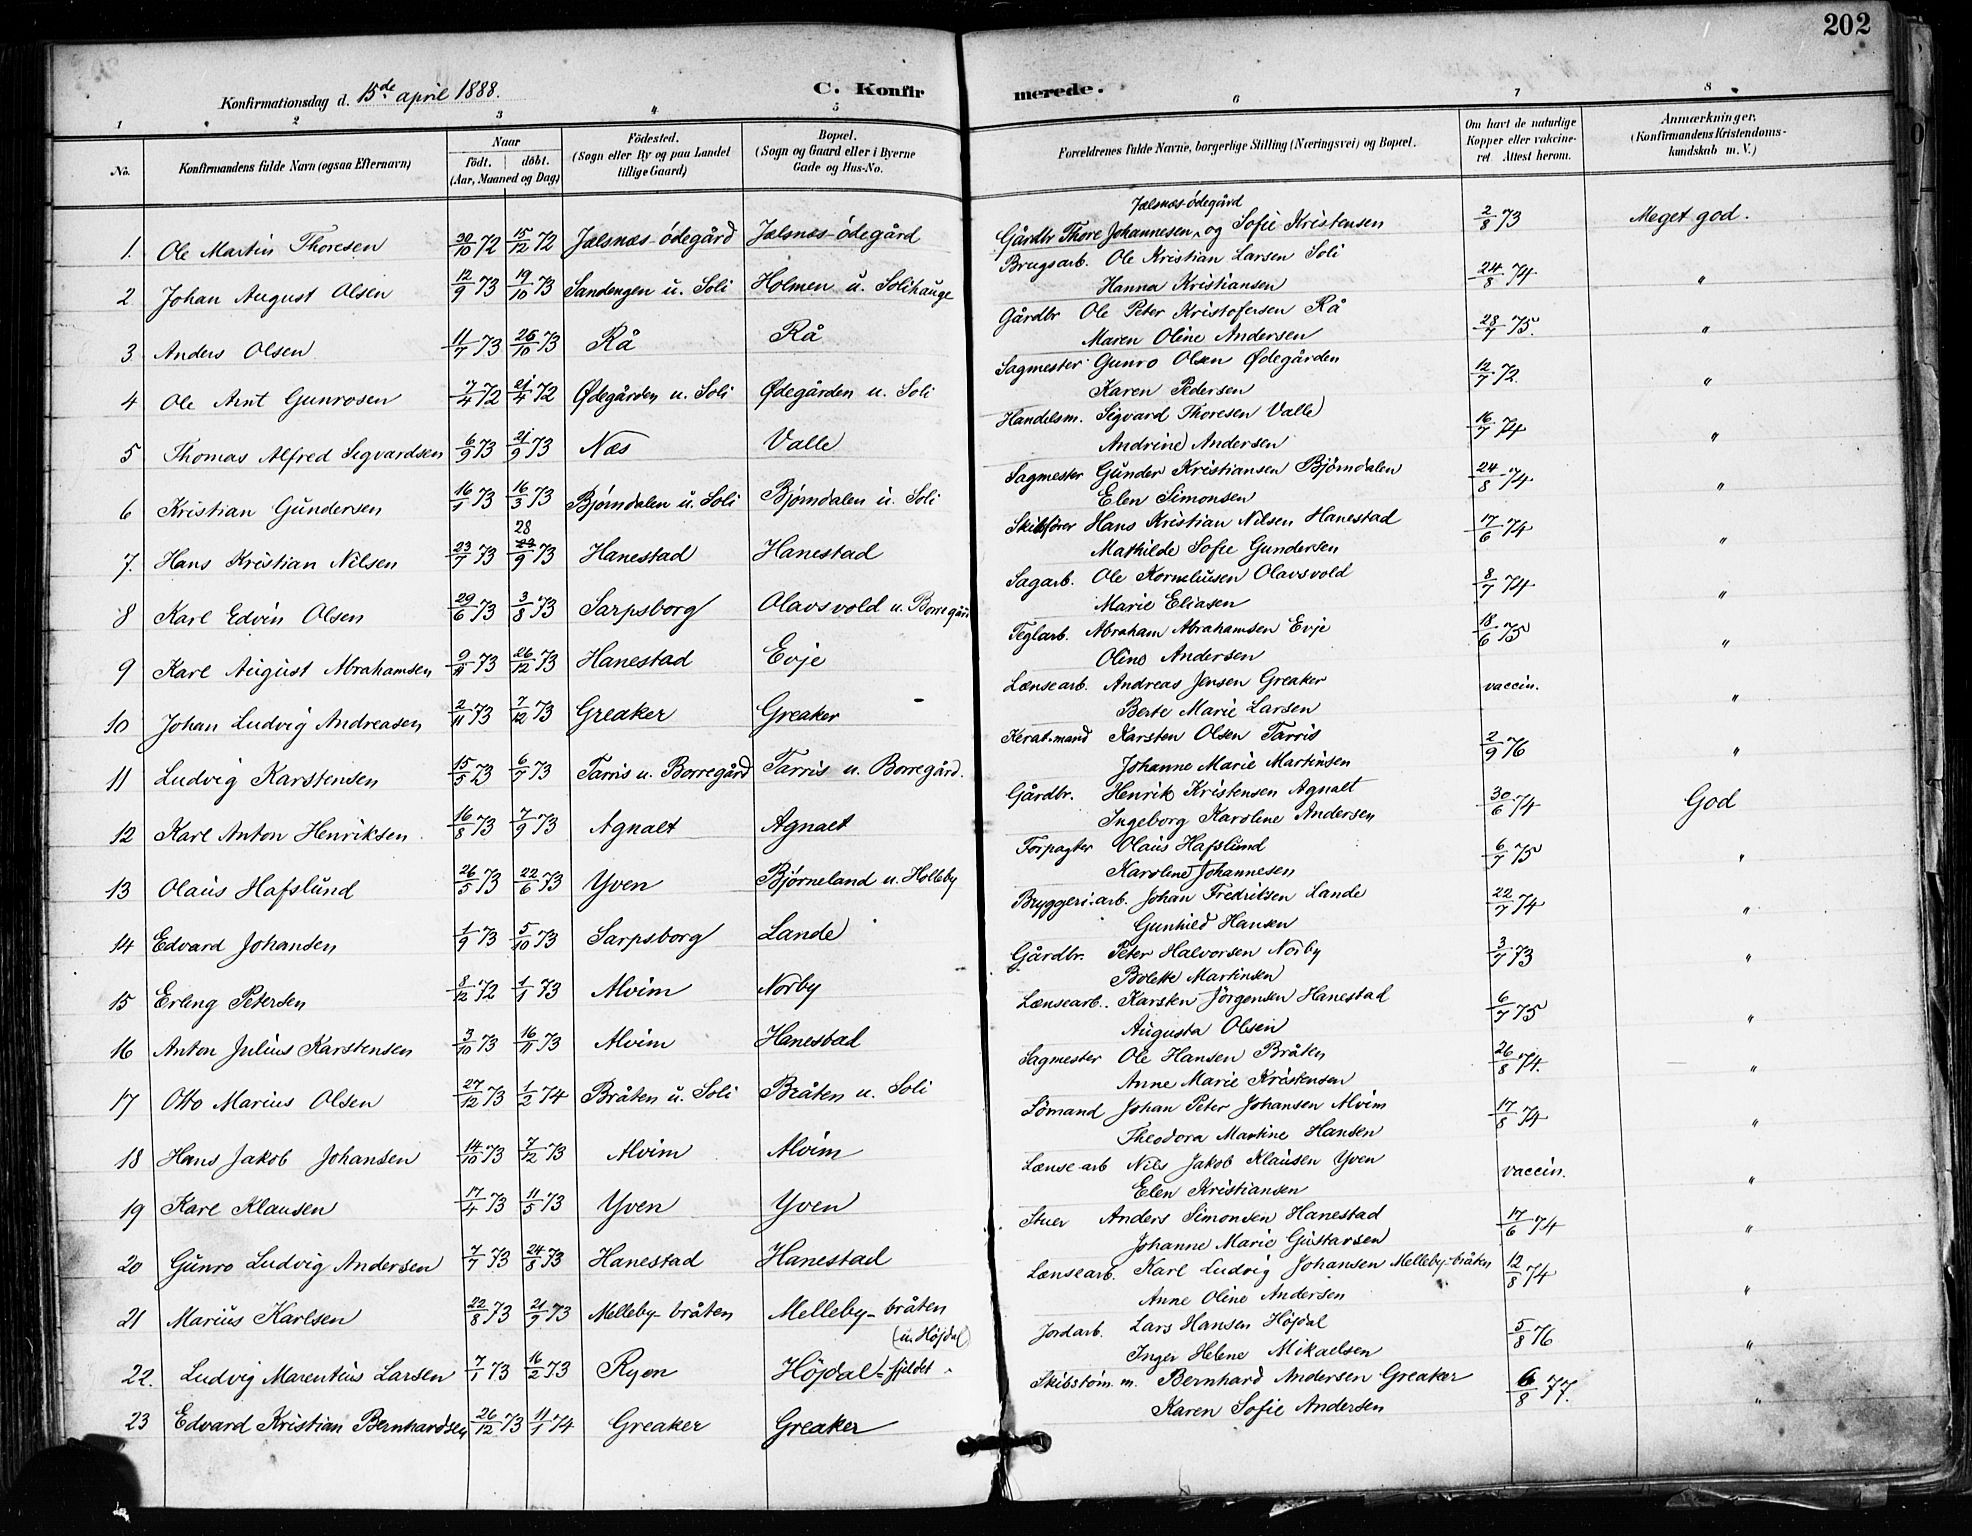 202
Konfirmationsdag d. 15de april 1888.
C. Konfirmerede.
1 2 3 4 5 6 7 8
No. Konfirmandens fulde Navn (ogsaa Efternavn) Naar födt. döbt. (Aar, Maaned og Dag) Födested. (Sogn eller By og paa Landet tillige Gaard) Bopæl. (Sogn og Gaard eller i Byerne Gade og Hus-No. Forældrenes fulde Navne, borgerlige Stilling (Næringsvei) og Bopæl. Om havt de naturlige Kopper eller vakcineret. Attest herom. Anmærkninger, (Konfirmandens Kristendomskundskab m. V.)
1. Ole Martin Thoresen 30/10 72 15/12 72 Jælsnæs-ödegård Jælsnæs-ödegård Gårdbr Thore Johannesen, Jælsnæs-ödegård og Sofie Kristensen 2/8 73 Meget god.
2 Johan August Olsen 12/9 73 19/10 73 Sandengen u. Soli Holmen u. Solihauge Brugsarb. Ole Kristian Larsen Soli
Hanna Kristiansen 24/8 74 "
3 Anders Olsen 11/7 73 26/10 73 Rå Rå Gårdbr Ole Peter Kristofersen Rå
Maren Oline Andersen 28/7 75. "
4 Ole Arnt Gunrosen 7/4 72 21/4 72 Ødegården u. Soli Ødegården u. Soli Sagmester Gunro Olsen Ødegården
Karen Pedersen 12/7 72. "
5 Thomas Alfred Sigvardsen 6/9 73 21/9 73 Næs Valle Handelsm. Sigvard Thoresen Valle
Andrine Andersen 16/7 74 "
6 Kristian Gundersen 16/1 73 16/3 73 Bjørndalen u. Soli Bjørndalen u. Soli Sagmester Gunder Kristiansen Bjørndalen
Elen Simonsen 24/8 74 "
7. Hans Kristian Nilsen 23/7 73 28/9 73 Hanestad Hanestad Skibsfører Hans Kristian Nilsen Hanestad
Mathilde Sofie Gundersen 17/6 74 "
8 Karl Edvin Olsen 29/6 73 3/8 73 Sarpsborg Olavsvold u. Borregård Sagarb. Ole Korneliusen Olavsvold
Marie Eliasen 8/7 74 "
9 Karl August Abrahamsen 9/11 73 26/12 73 Hanestad Evje Teglarb. Abraham Abrahamsen Evje
Oline Andersen 18/6 75 "
10 Johan Ludvig Andreasen 2/11 73 7/12 73 Greaker Greaker Lænsearb. Andreas Jensen Greaker
Berte Marie Larsen vaccin. "
11 Ludvig Karstensen 15/5 73 6/7 73 Tarris u. Borregård Tarris u. Borregård. Kerat-mand Karsten Olsen Tarris
Johanne Marie Martinsen 2/9 76 "
12 Karl Anton Henriksen 16/8 73 7/9 73 Agnalt Agnalt Gårdbr. Henrik Kristensen Agnalt
Ingeborg Karoline Andersen 30/6 74 God
13 Olaus Hafslund 26/5 73 22/6 73 Yven Bjørneland u. Holleby Forpagter Olaus Hafslund
Karoline Johannesen 6/7 75 "
14 Edvard Johansen 1/9 73 5/10 73 Sarpsborg Lande Bryggeri-arb. Johan Fredriksen Lande
Gunhild Hansen 22/7 74 "
15 Erling Petersen 8/12 72 1/1 73 Alvim Norby Gårdbr. Peter Halvorsen Norby
Bolette Martinsen 3/7 73 "
16 Anton Julius Karstensen 3/10 73 16/11 73 Alvim Hanestad Lænsearb. Karsten Jörgensen Hanestad
Augusta Olsen 6/7 75 "
17 Otto Marius Olsen 27/12 73 1/2 74 Bråten u. Soli Bråten u. Soli Sagmester Ole Hansen Bråten
Anne Marie Kristensen 26/8 74. "
18 Hans Jakob Johansen 14/10 73 7/12 73 Alvim Alvim Sömand Johan Peter Johansen Alvim
Theodora Martine Hansen 17/8 74 "
19 Karl Klausen 17/4 73 11/5 73 Yven Yven Lænsearb Nils Jakob Klausen Yven
Elen Kristiansen vaccin. "
20 Gunro Ludvig Andersen 7/7 73 24/8 73 Hanestad Hanestad Stuer Anders Simonsen Hanestad
Johanne Marie Gustavsen 17/6 74 "
21 Marius Karlsen 22/8 73 21/9 73 Melleby-bråten Melleby-bråten Lænsearb. Karl Ludvig Johansen Melleby-bråten
Anne Oline Andersen 12/8 74 "
22. Ludvig Marentius Larsen 7/1 73 16/2 73 Ryen Höjdal-fjeldet (u. Höjdal) Jordarb. Lars Hansen Höjdal
Inger Helene Mikaelsen 5/8 76 "
23 Edvard Kristian Bernhardsen 26/12 73 11/1 74 Greaker Greaker Skibstøm.m. Bernhard Andersen Greaker
Karen Sofie Andersen 6/8 77. "